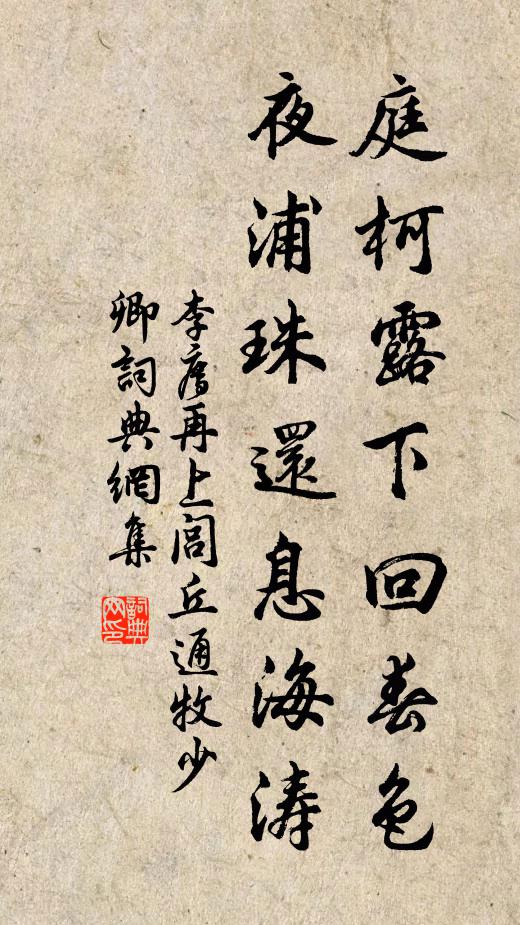 庭柯露下回春色
夜浦珠還息海濤
李廌再上閭丘通牧少
卿詞典網集
詞典
网印